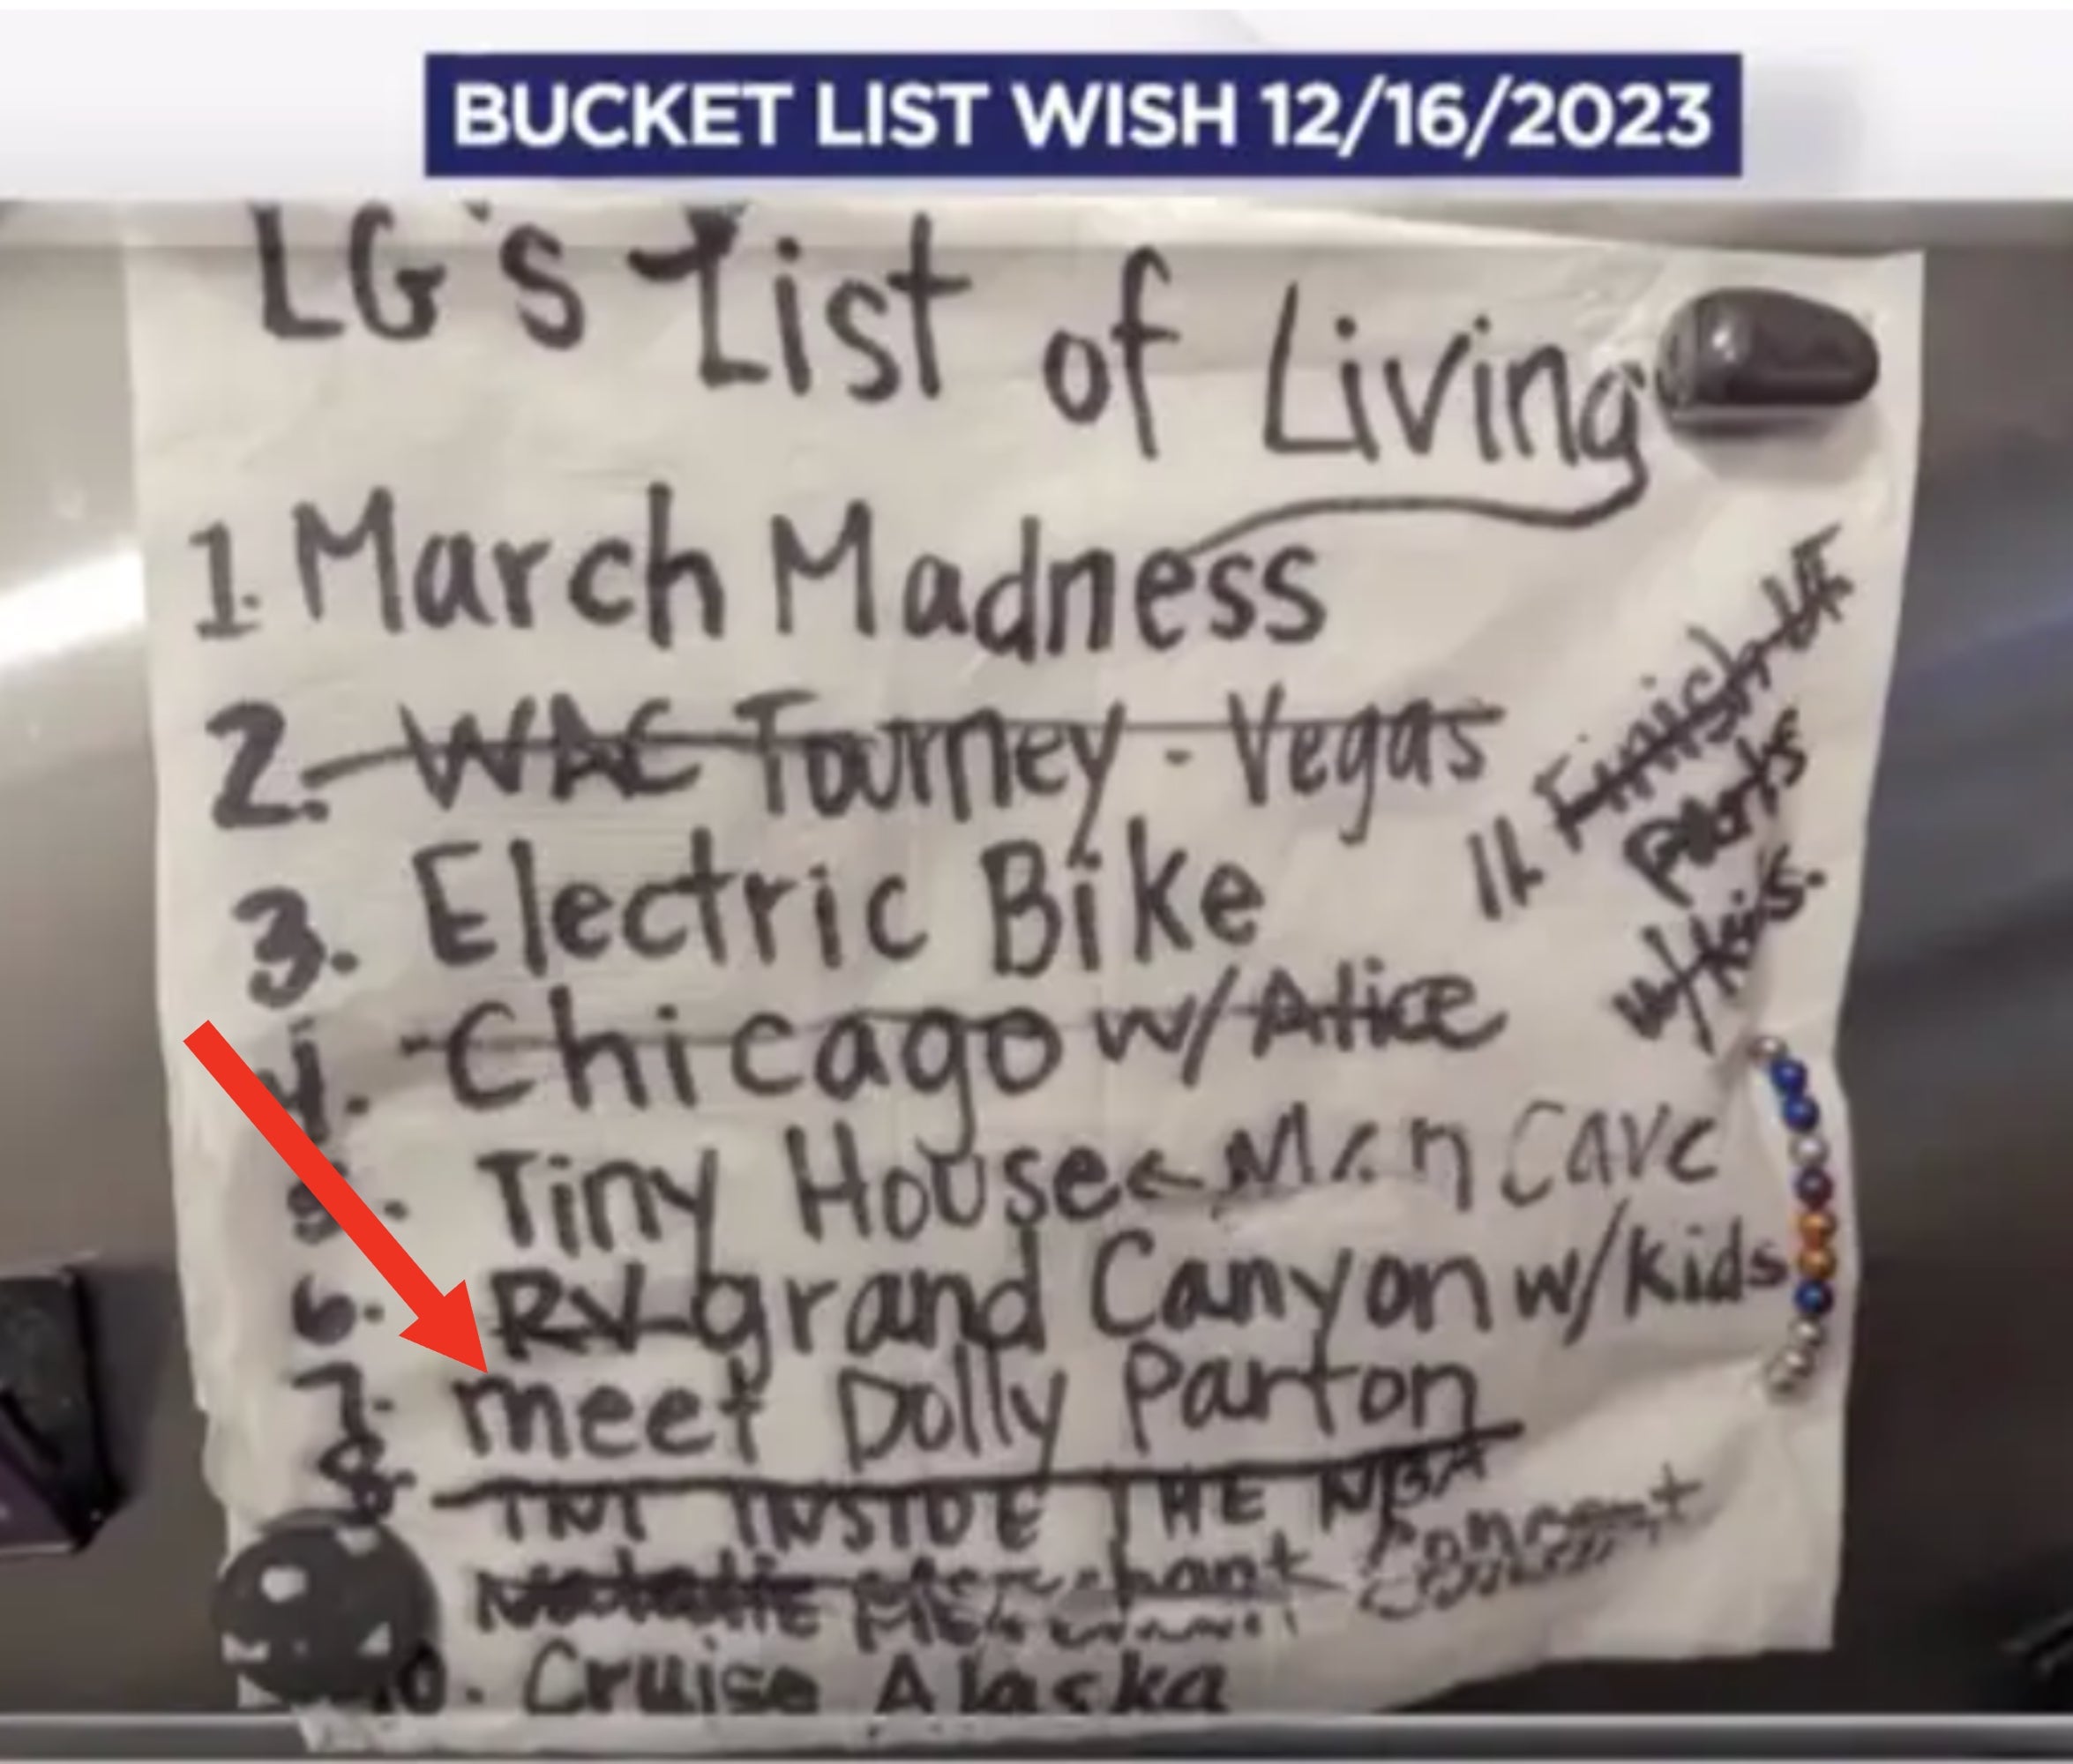 BUCKET LIST WISH 12/16/2023
LG's List of Living
1. March Madness
2. WAC Tourney - Vegas
3. Electric Bike
4. Chicago w/ Alice
5. Tiny House ← Man Cave
6. RV grand Canyon w/ kids
7. meet Dolly Parton
8. TNT INSIDE THE NBA
Natalie Merchant Concert
10. Cruise Alaska
11. Finish
w/